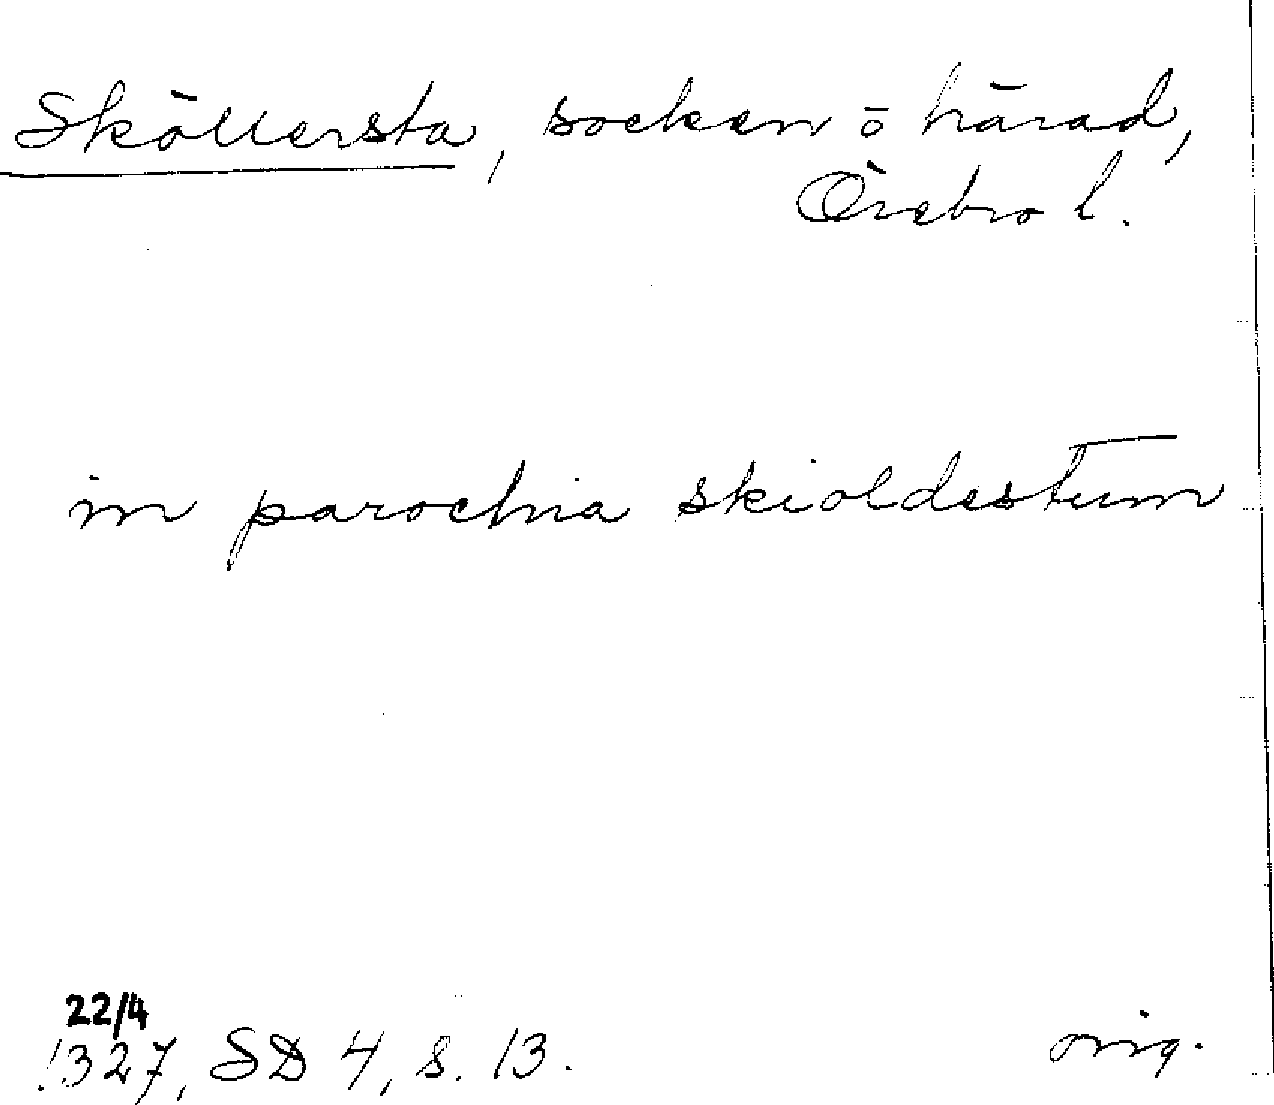 Sköllersta, socken ö härad,
Örebro l.
in parochia skioldestum
22/4
1327, SD 4, s. 13.
orig.